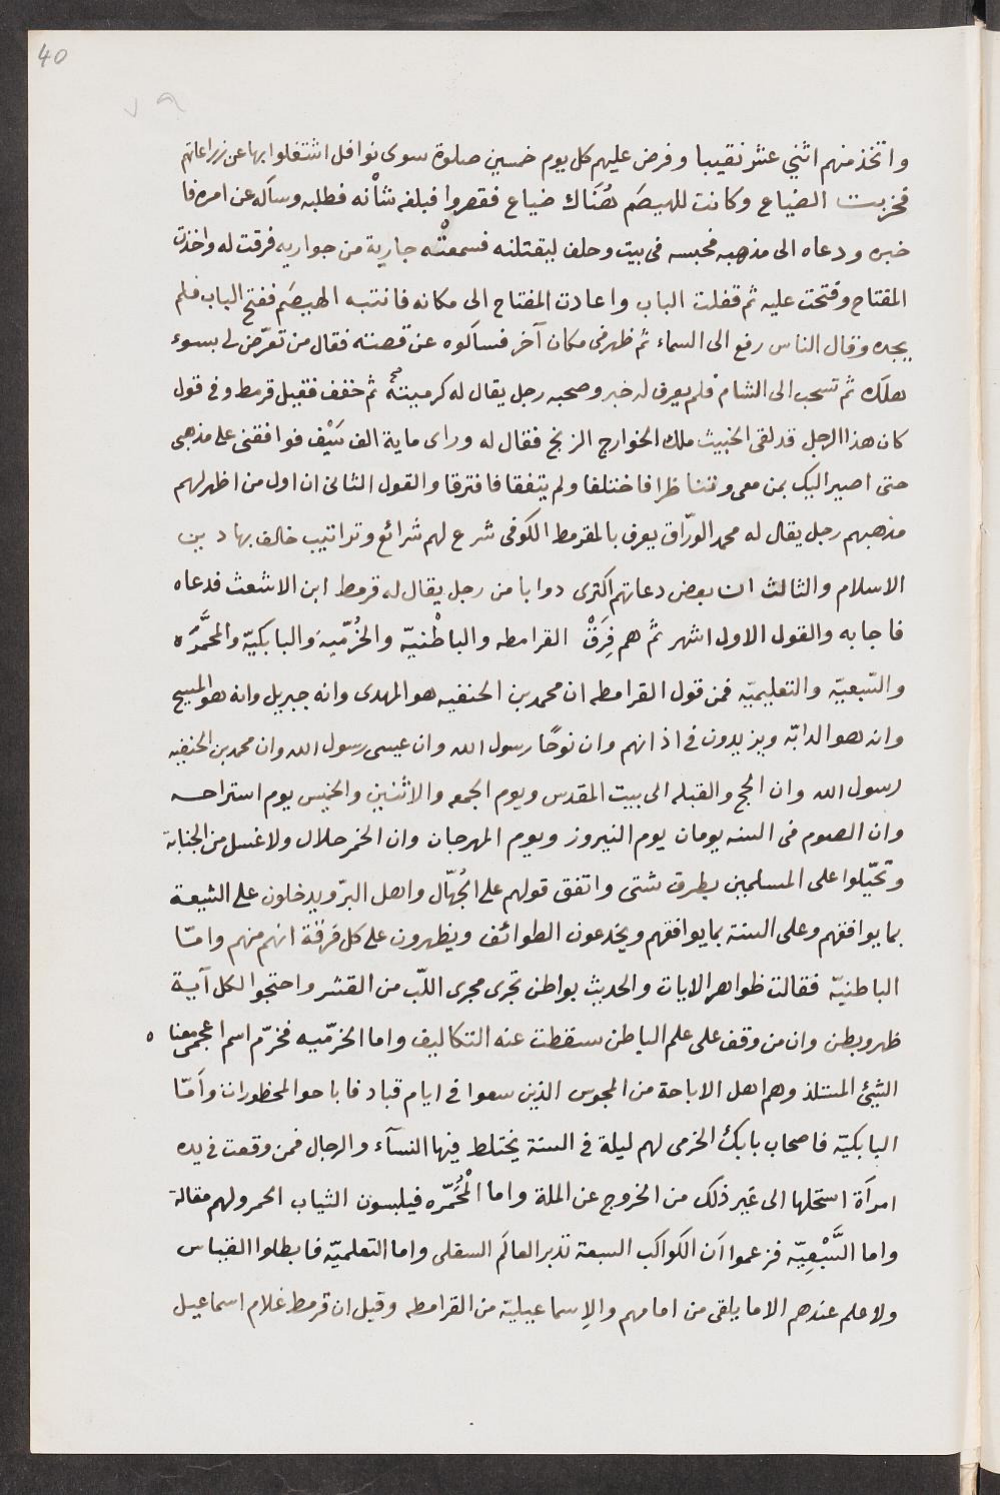 40
٧٩
واتخذ منهم اثني عشر نقيبا وفرض عليهم كل يوم خمسين صلوة سوى نوافل اشتغلوا بها عن زراعاتهم
فخربت الضياع وكانت للهيصَم هُنَاك ضياع فقصروا فبلغه شأنه فطلبه وسآله عن امره فا
خبره ودعاه الى مذهبه فحبسه فى بيت وحلف ليقتلنه فسمعتْه جارية من جواريه فرقت له واخذت
المفتاح وفتحت عليه ثم قفلت الباب واعادت المفتاح الى مكانه فانتبه الهيصَم ففتح الباب فلم
يجده وقال الناس رفع الى السماء ثم ظهر فى مكان آخر فسآلوه عن قصته فقال من تعرّض لى بسوء
هلك ثم تسحب الى الشام فلم يعرف له خبر وصحبه رجل يقال له كرميتة ثم خفف فقيل قرمط وفى قول
كان هذا الرجل قد لقى الخبيث ملك الخوارج الزنج فقال له وراى ماية الف سَيْف فوافقنى على مذهبى
حتى اصير اليك بمن معى وتناظرا فاختلفا ولم يتفقا فافترقا والقول الثانى ان اول من اظهر لهم
مذهبهم رجل يقال له محمد الورّاق يعرف بالمقرمط الكوفى شرع لهم شرائع وتراتيب خالف بها دين
الاسلام والثالث ان بعض دعاتهم اكترى دوابا من رجل يقال له قرمط ابن الاشعث فدعاه
فاجابه والقول الاول اشهر ثم هم فِرَقْ القرامطه والباطْنيّة والخُرّميّه والبابكيّة والمحَّمره
والسّبعيّه والتعليميّه فمن قول القرامطه ان محمد بن الحنفيه هو المهدى وانه جبريل وانه هو المسيح
وانه هو الدابّه ويزيدون فى اذانهم وان نوحًا رسول الله وان عيسى رسول الله وان محمد بن الحنفيه
رسول الله وان الحج والقبله الى بيت المقدس ويوم الجمعه والاثنين والخميس يوم استراحه
وان الصوم فى السنه يومان يوم النيروز ويوم المهرجان وان الخمر حلال ولا غسل من الجنابة
وتحيّلوا على المسلمين بطرق شتى واتفق قولهم على الجُهّال واهل البرّ ويدخلون على الشيعة
بما يوافقهم وعلى السنة بما يوافقهم ويخدعون الطوائف ويظهرون على كل فرقة انهم منهم وامّا
الباطنيّة فقالت ظواهر الايات والحديث بواطن تجرى مجرى اللّب من القشر واحتجوا لكل آية
ظهر وبطن وان من وقف على علم الباطن سقطت عنه التكاليف واما الخرّميه فخرّم اسم اعجمى معناه
الشيئ المستلذ وهم اهل الاباحة من المجوس الذين سعوا فى ايام قباد فاباحوا المحظورات وآمّا
البابكيّة فاصحاب بابك الخرمى لهم ليلة فى السنة يختلط فيها النسآء والرجال فمن وقعت فى يده
امرآة استحلها الى غير ذلك من الخروج عن الملة واما المحُمّره فيلبسون الثياب الحمر ولهم مقالة
واما السَّبْعِيّه فزعموا آن الكواكب السبعة تدبر العالَم السفلى واما التعلميّة فابطلوا القياس
ولا علم عندهم الا ما يلقى من امامهم والاِسماعيلية من القرامطه وقيل ان قرمط غلام اسماعيل